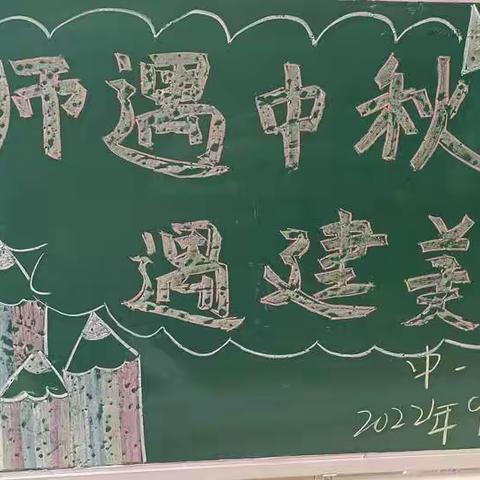 师遇中秋
遇建美
中一
2022年9